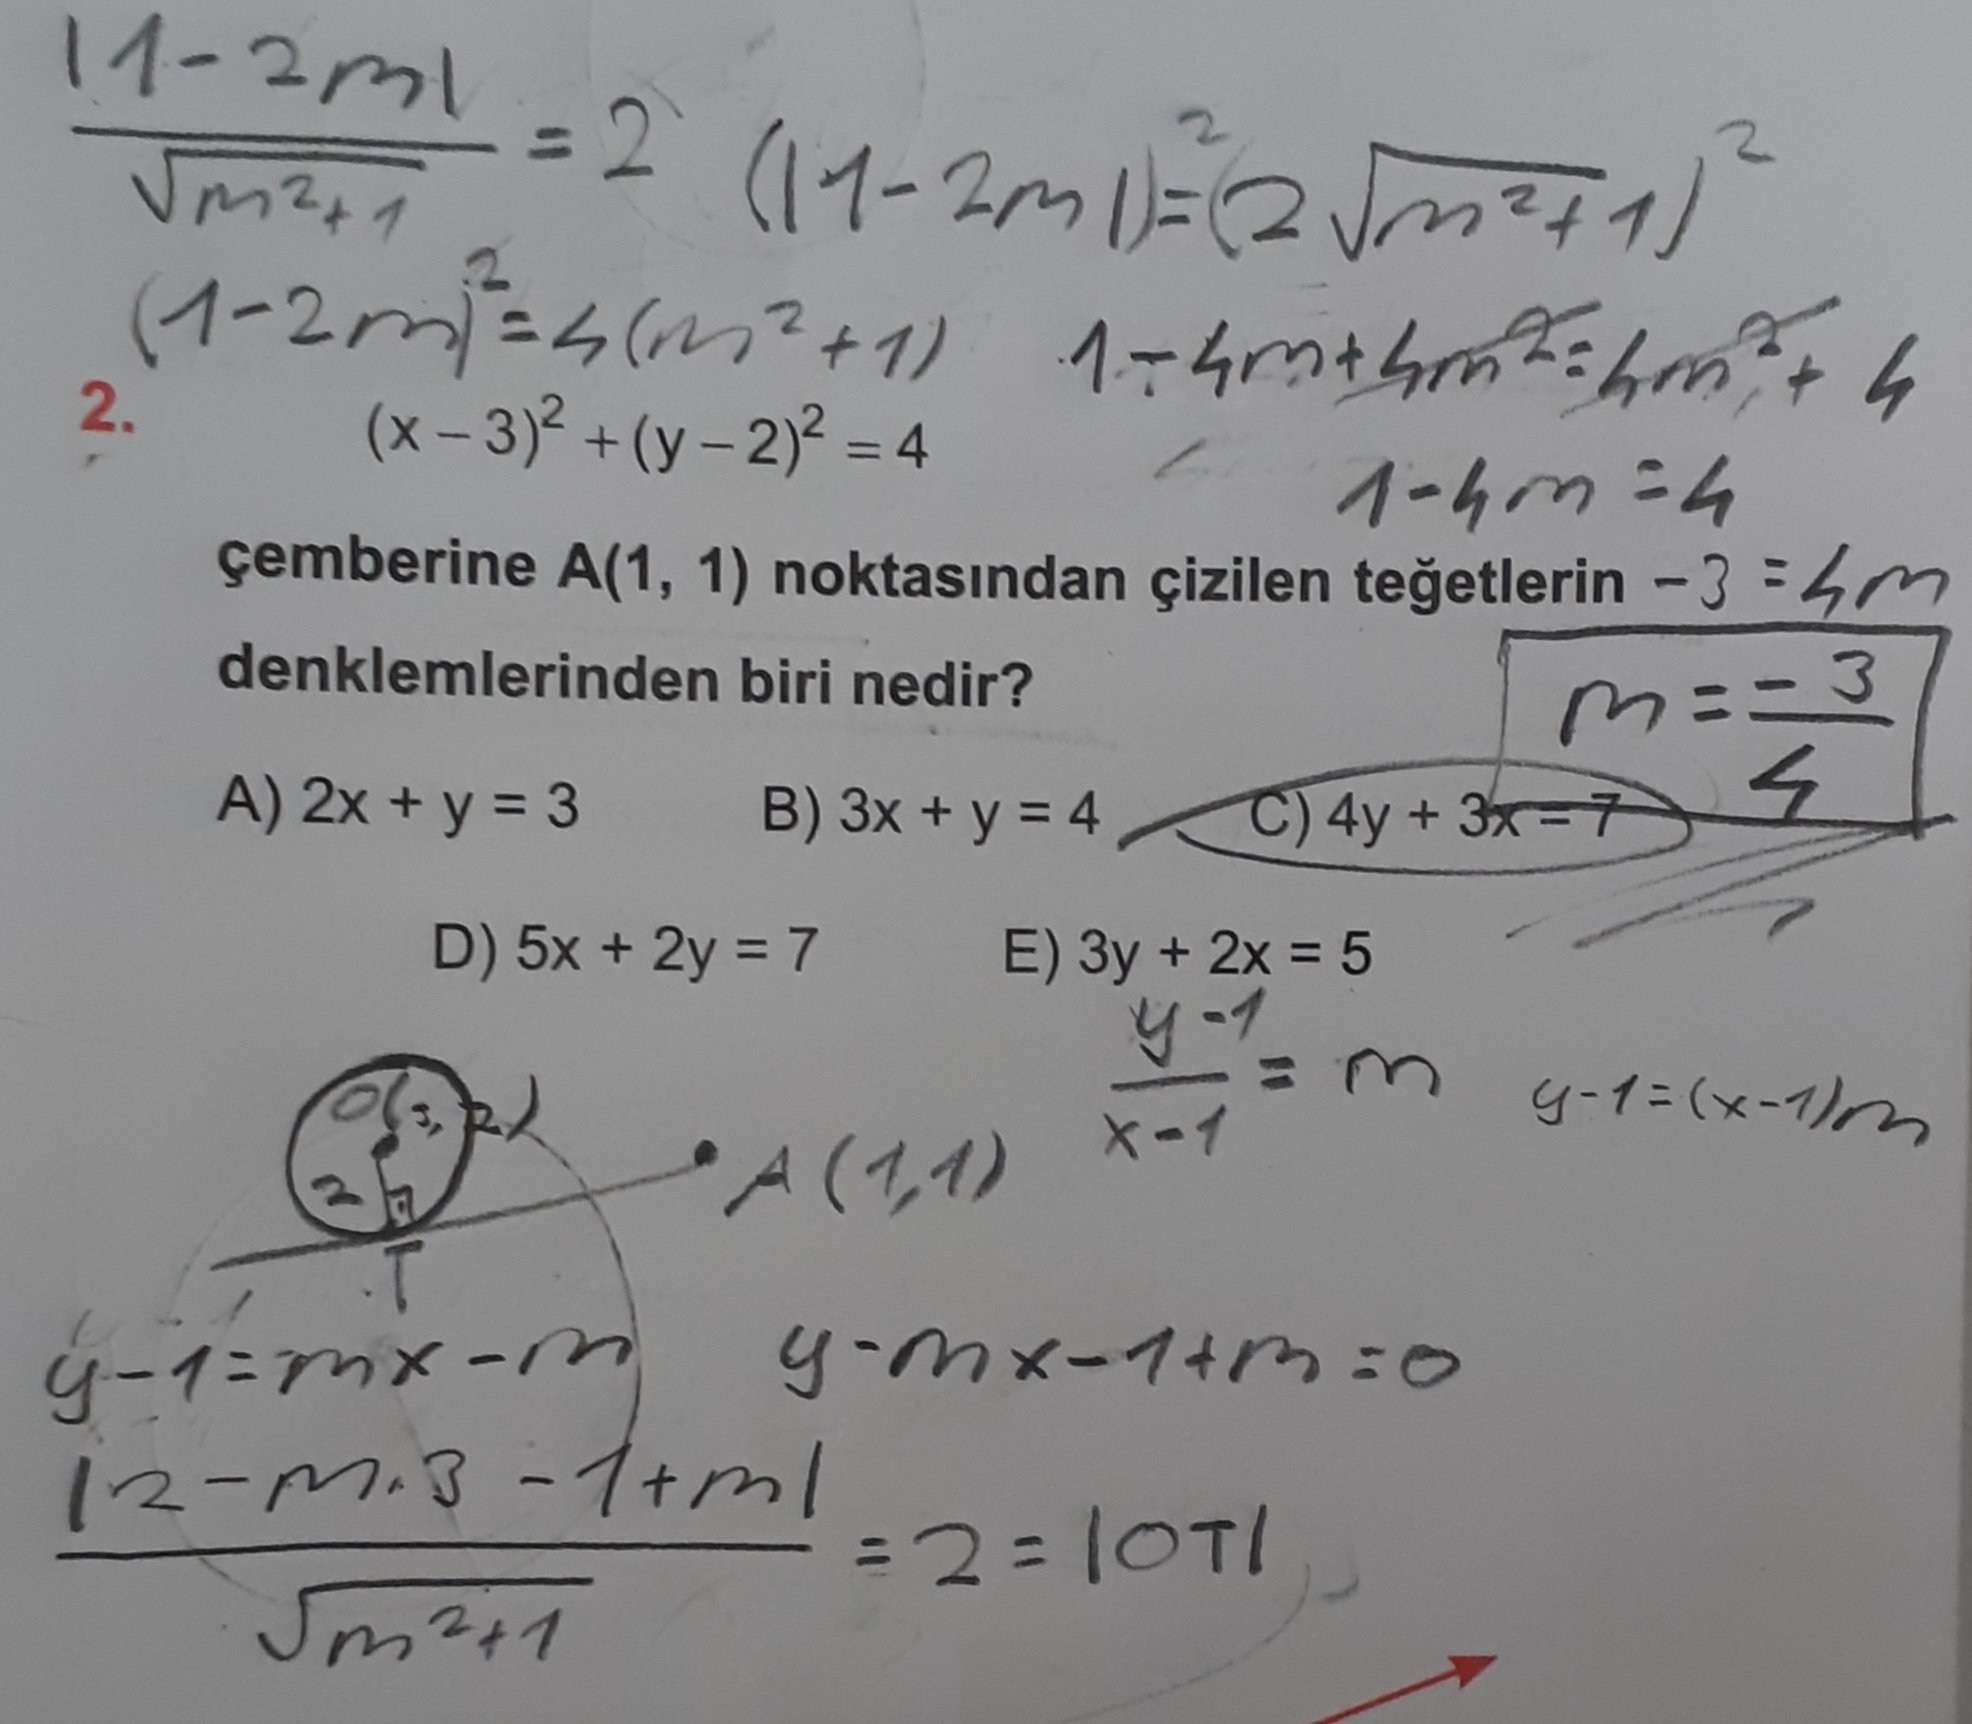 |1-2m| / √m²+1 = 2 (|1-2m|)² = (2√m²+1)²
(1-2m)² = 4(m²+1) 1-4m+4m² = 4m²+4
2. (x – 3)² + (y – 2)² = 4
1-4m = 4
çemberine A(1, 1) noktasından çizilen teğetlerin
-3 = 4m
denklemlerinden biri nedir?
m = -3/4
A) 2x + y = 3 B) 3x + y = 4 C) 4y + 3x = 7
D) 5x + 2y = 7 E) 3y + 2x = 5
y-1 / x-1 = m y-1=(x-1)m
O(3, 2)
2
A(1,1)
T
y-1=mx-m y-mx-1+m=0
|2-m.3-1+m| / √m²+1 = 2 = |OT|